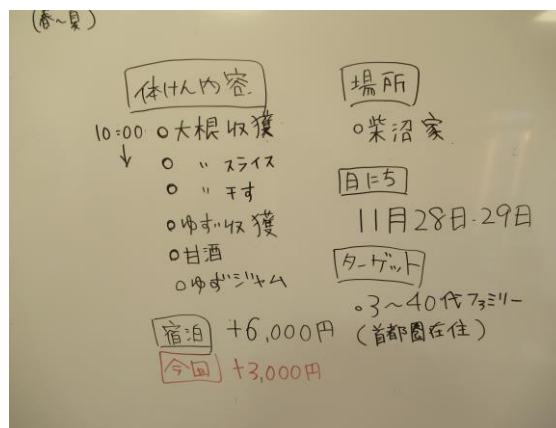 (春〜夏)
体けん内容
10:00 ○大根収獲
↓ ○ 〃 スライス
○ 〃 干す
○ゆず収獲
○甘酒
○ゆずジャム
宿泊 +6,000円
今回 +3,000円
場所
○柴沼家
日にち
11月28日・29日
ターゲット
○3〜40代ファミリー
(首都圏在住)